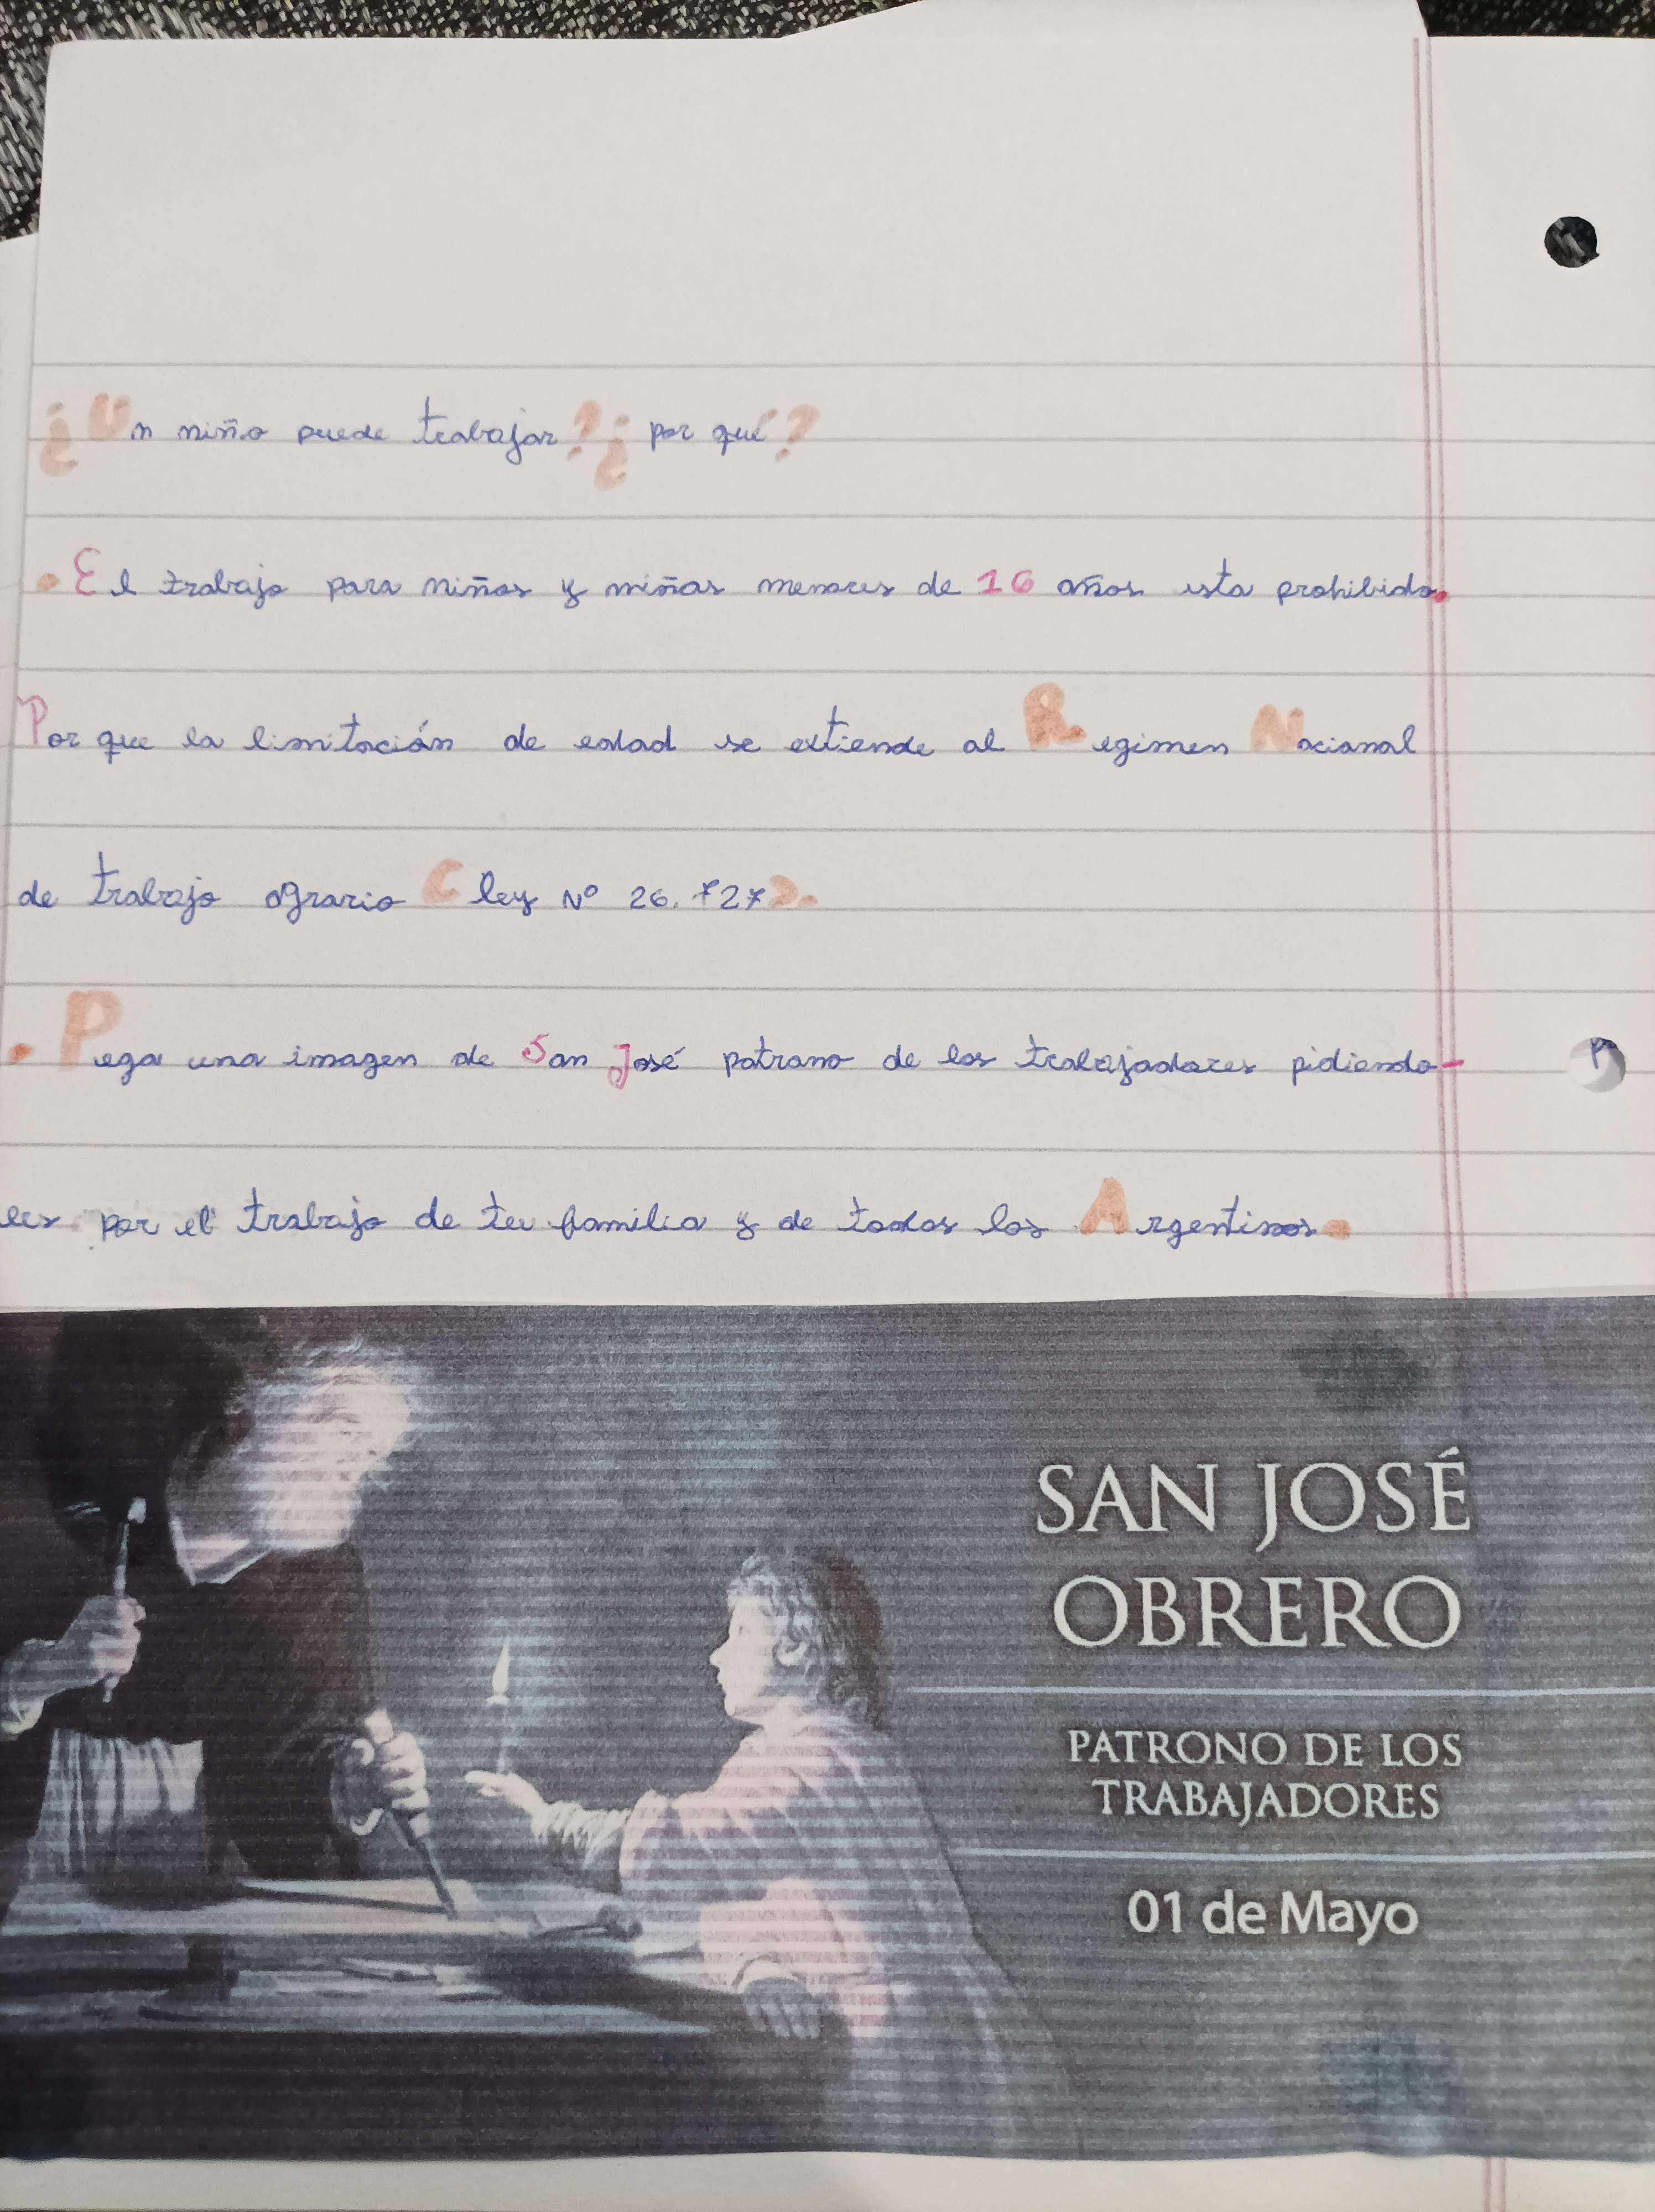 ¿Un niño puede trabajar? ¿por qué?
• El trabajo para niños y niñas menores de 16 años esta prohibido.
Por que la limitación de edad se extiende al Regimen Nacional
de trabajo agrario (ley Nº 26.727).
• Pega una imagen de San José patrono de los trabajadores pidiendo-
les por el trabajo de tu familia y de todos los Argentinos.
SAN JOSÉ
OBRERO
PATRONO DE LOS
TRABAJADORES
01 de Mayo